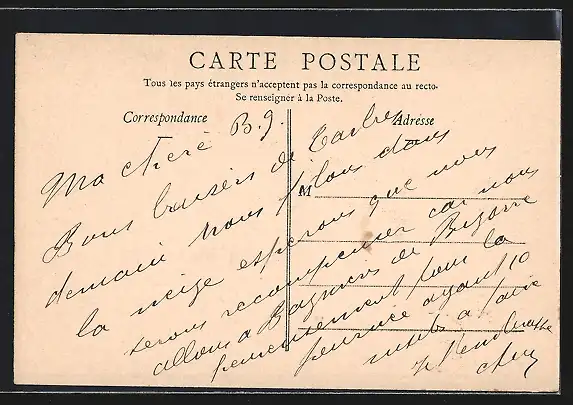 CARTE POSTALE
Tous les pays étrangers n'acceptent pas la correspondance au recto.
Se renseigner à la Poste.
Correspondance
Adresse
M
Ma chere B. 9.
Bons baisers de Tarbes
demain nous filons dans
la neige esperons que nous
serons recompenser car nous
allons a Bagneres de Bigorre
peineusement tous la
journee ayant 10
a faire